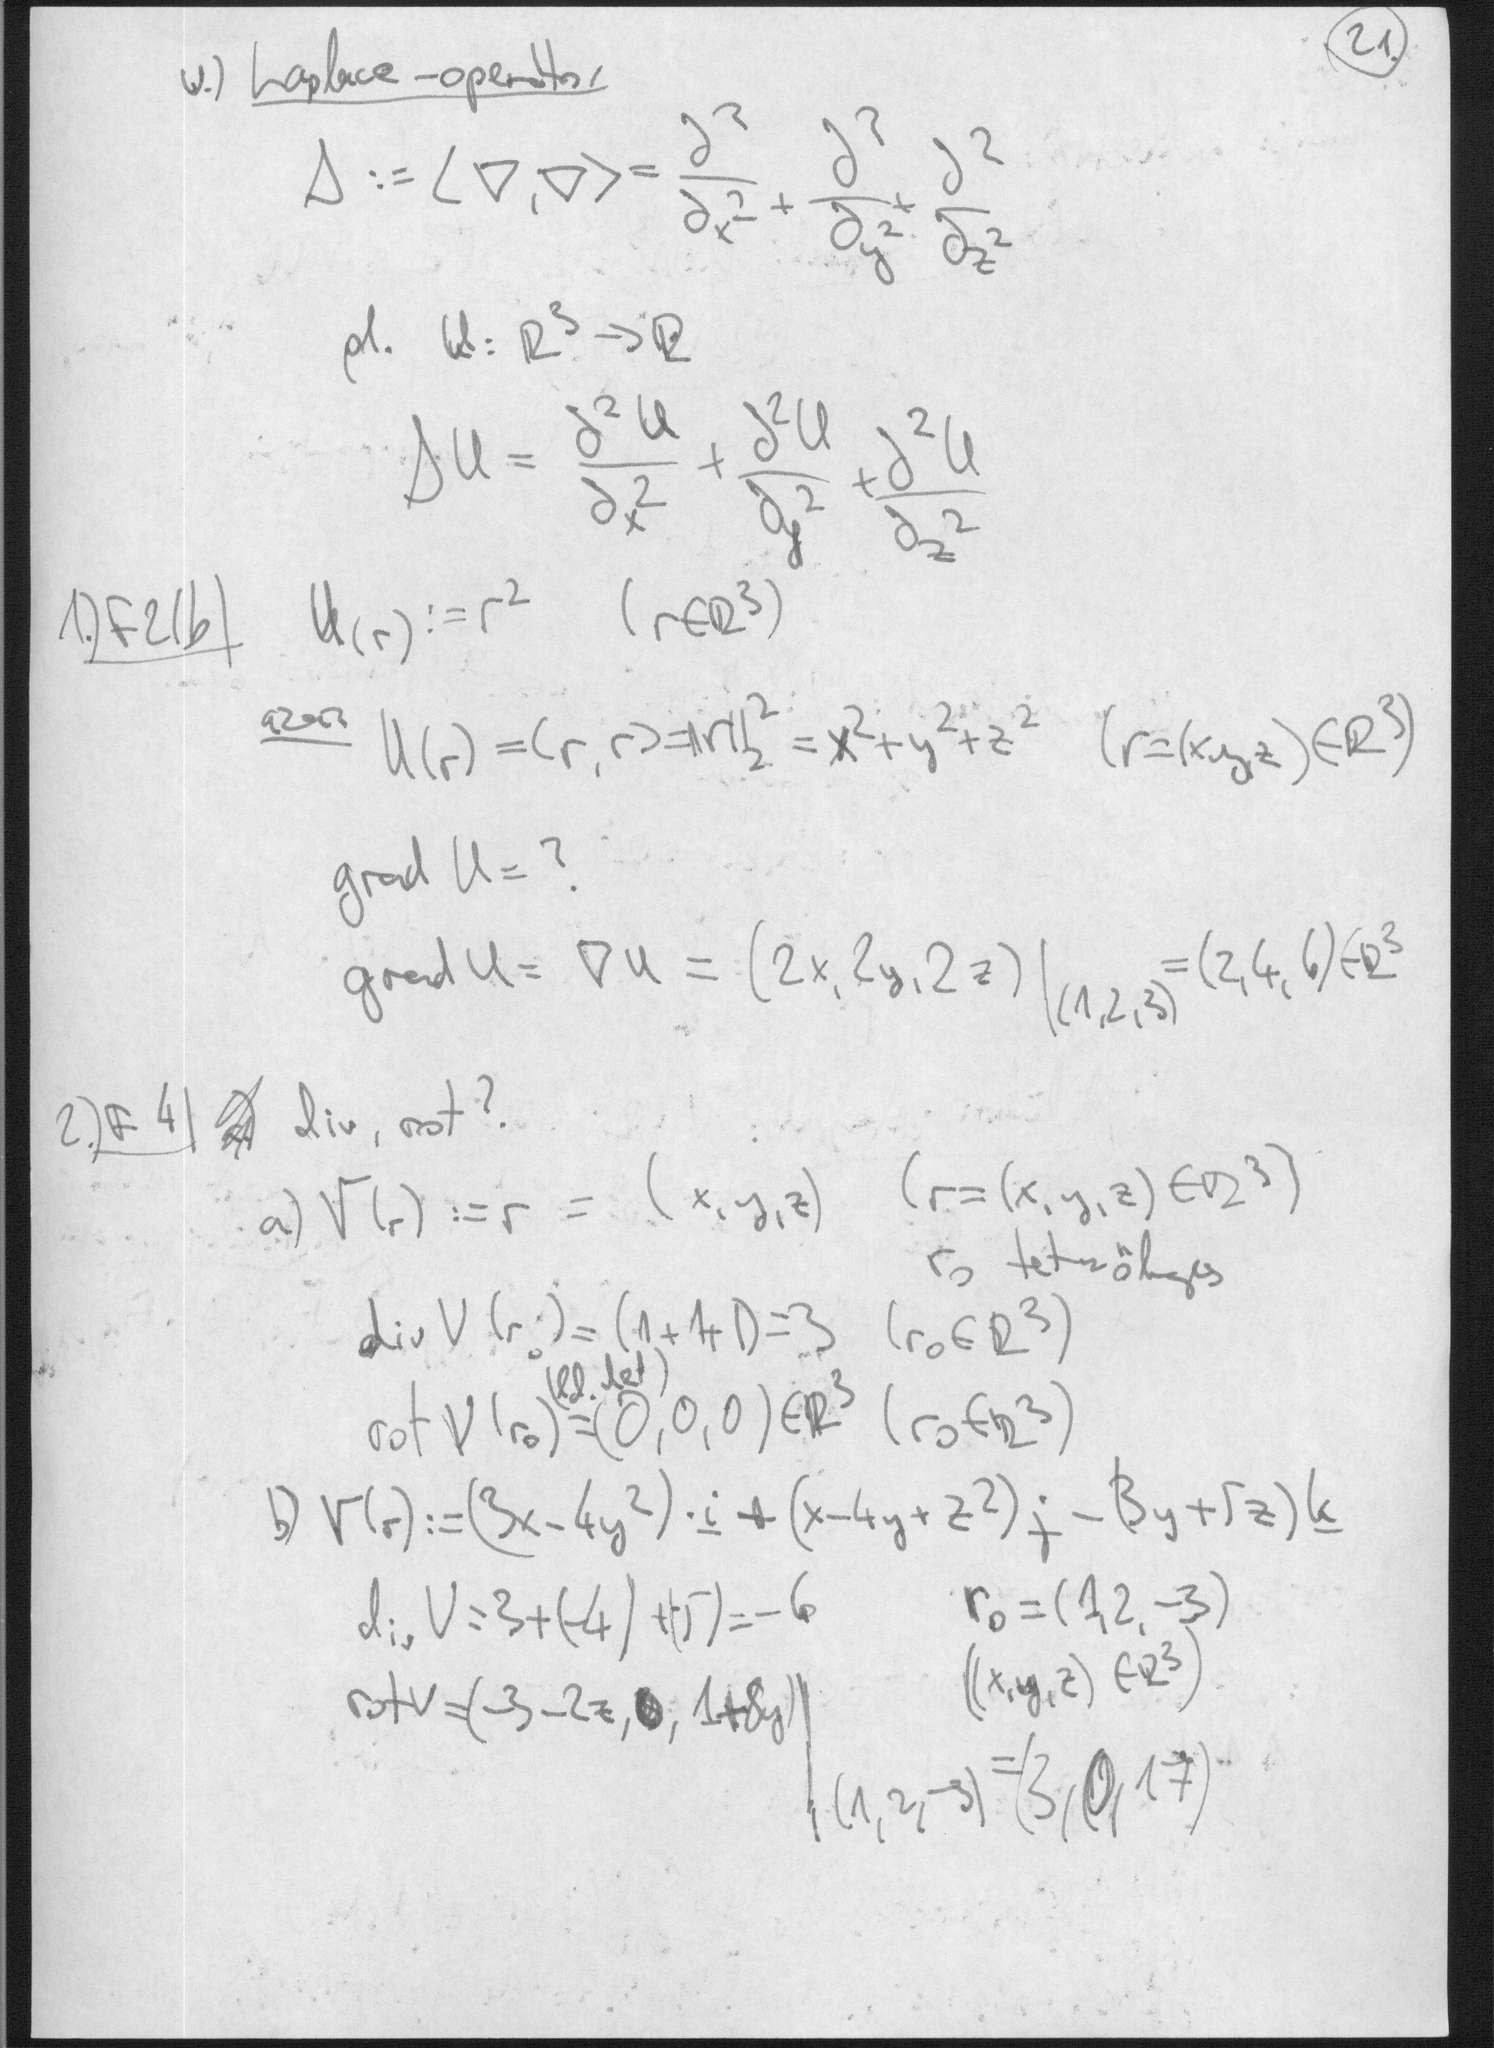 21.
w.) Laplace-operátor
Δ := <∇,∇> = ∂²/∂x² + ∂²/∂y² + ∂²/∂z²
pl. U: ℝ³ → ℝ
ΔU = ∂²U/∂x² + ∂²U/∂y² + ∂²U/∂z²
1.) F2/b/ U(r) := r² (r∈ℝ³)
azaz U(r) = <r, r> = ‖r‖₂² = x²+y²+z² (r=(x,y,z)∈ℝ³)
grad U = ?
grad U = ∇U = (2x, 2y, 2z)|(1,2,3) = (2,4,6)∈ℝ³
2.) F4/ div, rot?
a) V(r) := r = (x, y, z) (r=(x,y,z)∈ℝ³)
r₀ tetszőleges
div V(r₀) = (1+1+1) = 3 (r₀∈ℝ³)
rot V(r₀) = (0,0,0)∈ℝ³ (r₀∈ℝ³)
b) V(r) := (3x-4y²)·i + (x-4y+z²)j - (3y+5z)k
div V = 3+(-4)+(-5) = -6 r₀ = (1,2,-3)
((x,y,z)∈ℝ³)
rot V = (-3-2z, 0, 1+8y)|(1,2,-3) = (3,0,17)